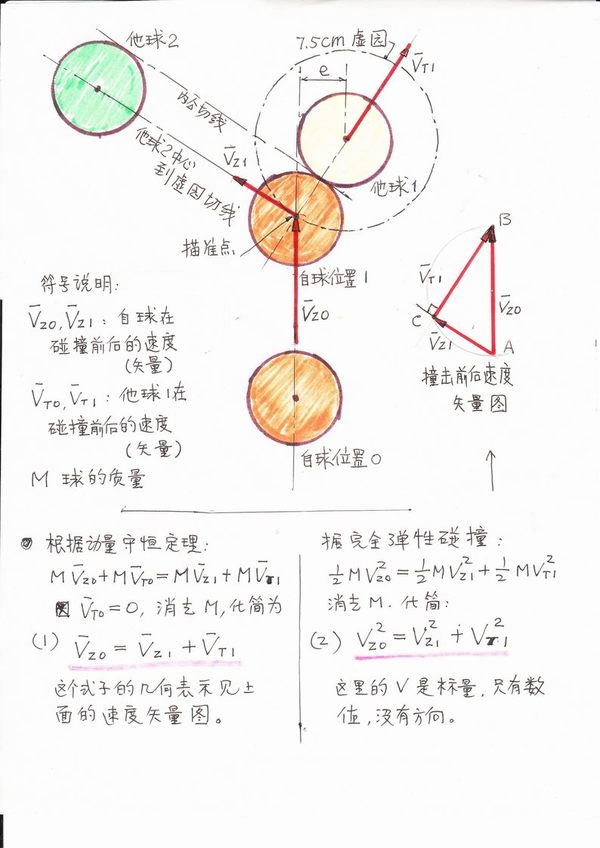 他球2
7.5cm 虚园
V̄T1
e
内公切线
他球2中心
到虚园切线
V̄Z1
他球1
描准点
自球位置1
V̄Z0
自球位置0
B
V̄T1
V̄Z0
C
V̄Z1
A
撞击前后速度
矢量图
符号说明:
V̄Z0, V̄Z1: 自球在
碰撞前后的速度
(矢量)
V̄T0, V̄T1: 他球1在
碰撞前后的速度
(矢量)
M 球的质量
根据动量守恒定理:
MV̄Z0+MV̄T0=MV̄Z1+MV̄T1
因 V̄T0=0, 消去M,化简为
(1) V̄Z0 = V̄Z1 + V̄T1
这个式子的几何表示见上
面的速度矢量图。
据完全弹性碰撞:
½MV²Z0=½MV²Z1+½MV²T1
消去M.化简:
(2) V²Z0 = V²Z1 + V²T1
这里的V是标量,只有数
值,没有方向。